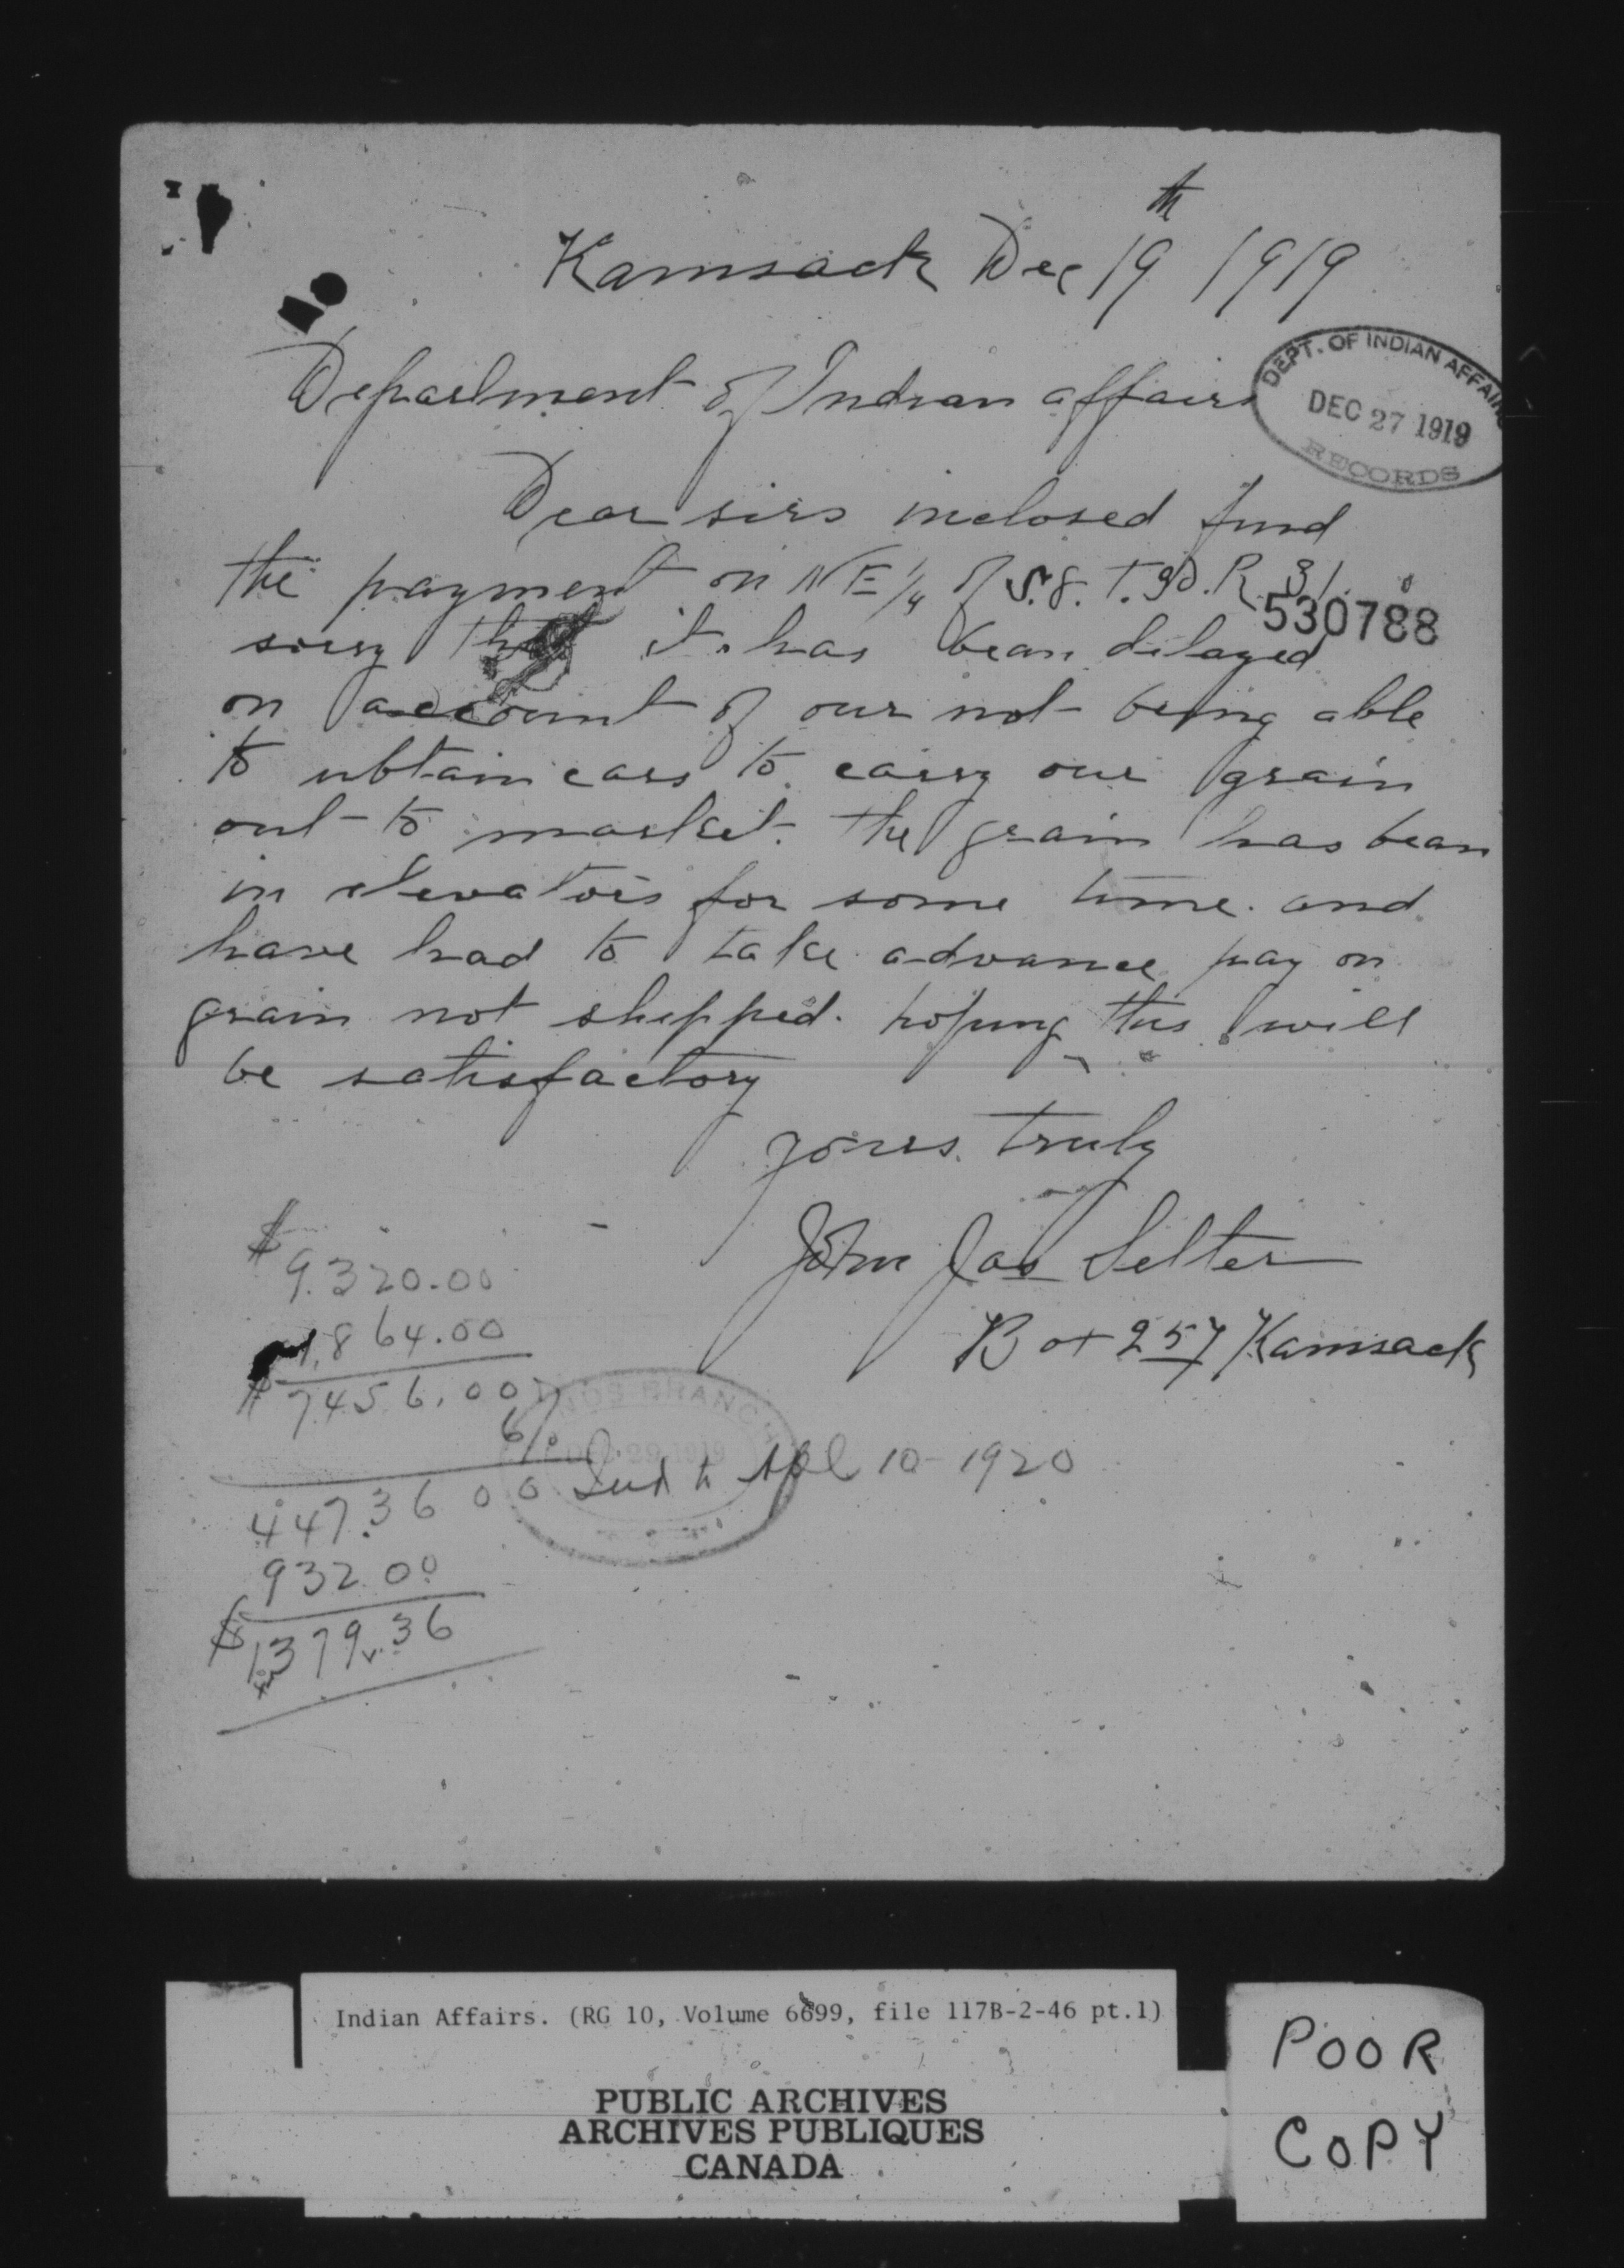 Kamsack Dec 19th 1919
Department of Indian affairs
DEPT. OF INDIAN AFFAIRS
DEC 27 1919
RECORDS
Dear sirs inclosed find
the payment on NE 1/4 of S.8. T.30. R 31.
530788
sorry that it has bean dilayed
on account of our not being able
to ubtain cars to carry our grain
out to market. the grain has bean
in elevators for some time. and
have had to take advance pay on
grain not shipped. hoping this will
be satisfactory
yours truly
John Jas Selter
Box 257 Kamsack
$9.320.00
1,864.00
$7456.00
6%
447.3600 Ind to Apl 10-1920
932.00
$1379.36
LANDS BRANCH
DEC 29 1919
Indian Affairs. (RG 10, Volume 6699, file 117B-2-46 pt.1)
PUBLIC ARCHIVES
ARCHIVES PUBLIQUES
CANADA
POOR
COPY